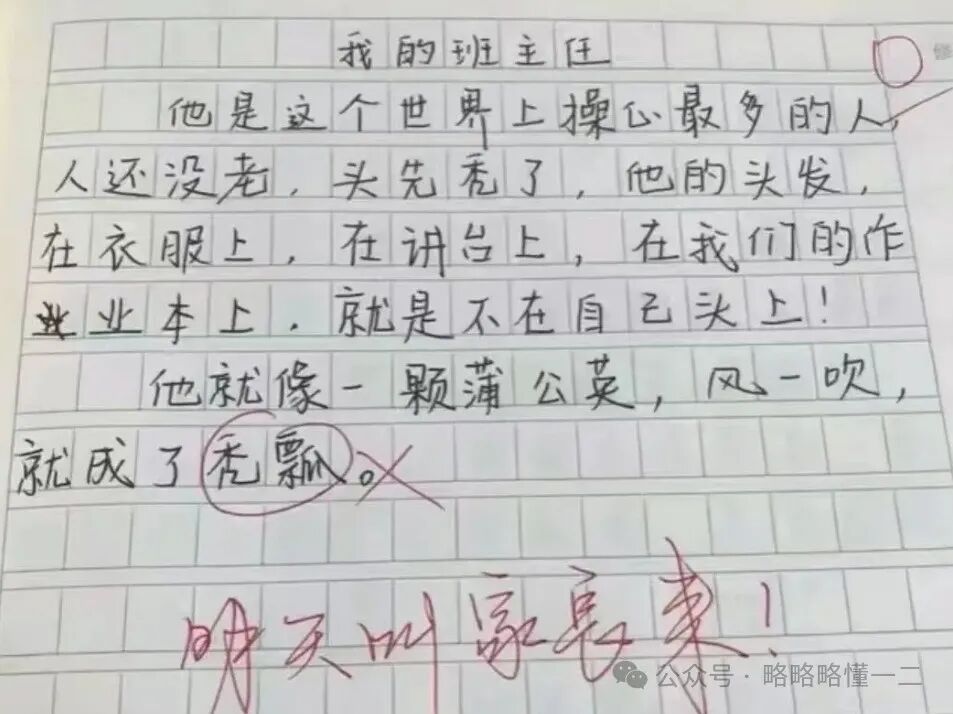 我的班主任
他是这个世界上操心最多的人,
人还没老,头先秃了,他的头发,
在衣服上,在讲台上,在我们的作
业本上,就是不在自己头上!
他就像一颗蒲公英,风一吹,
就成了秃瓢。
明天叫家长来!
公众号·略略略懂一二